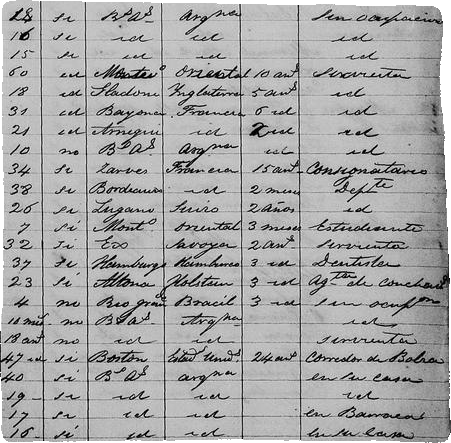 18 si Bs As Argna sin ocupacion
16 si id id id
15 si id id id
60 id Monteo Oriental 10 ans sirvienta
18 id Inglaterra 5 ans id
31 id Bayona Francia 6 id id
21 id id 2 id id
10 no Bs As Argna id id
34 si Tarves Francia 15 ans Consignatario
38 si Bordeaux id 2 meses Depte
26 si Lugano Suizo 2 años id
7 si Monto Oriental 3 meses Estudiante
32 si Savoya 2 ans Sirvienta
37 si Hamburgo Hamburgo 3 id Dentista
23 si Altona Holstein 3 id
4 no Rio grae Bracil 3 id sin ocupon
10 ms no Bs As Argna id
18 ans no id id sirvienta
47 id si Boston Estads Unids 24 ans Corredor de Bolsa
40 si Bs As argna en su casa
19 si id id id
17 si id id en Barraca
16 si id id en su casa